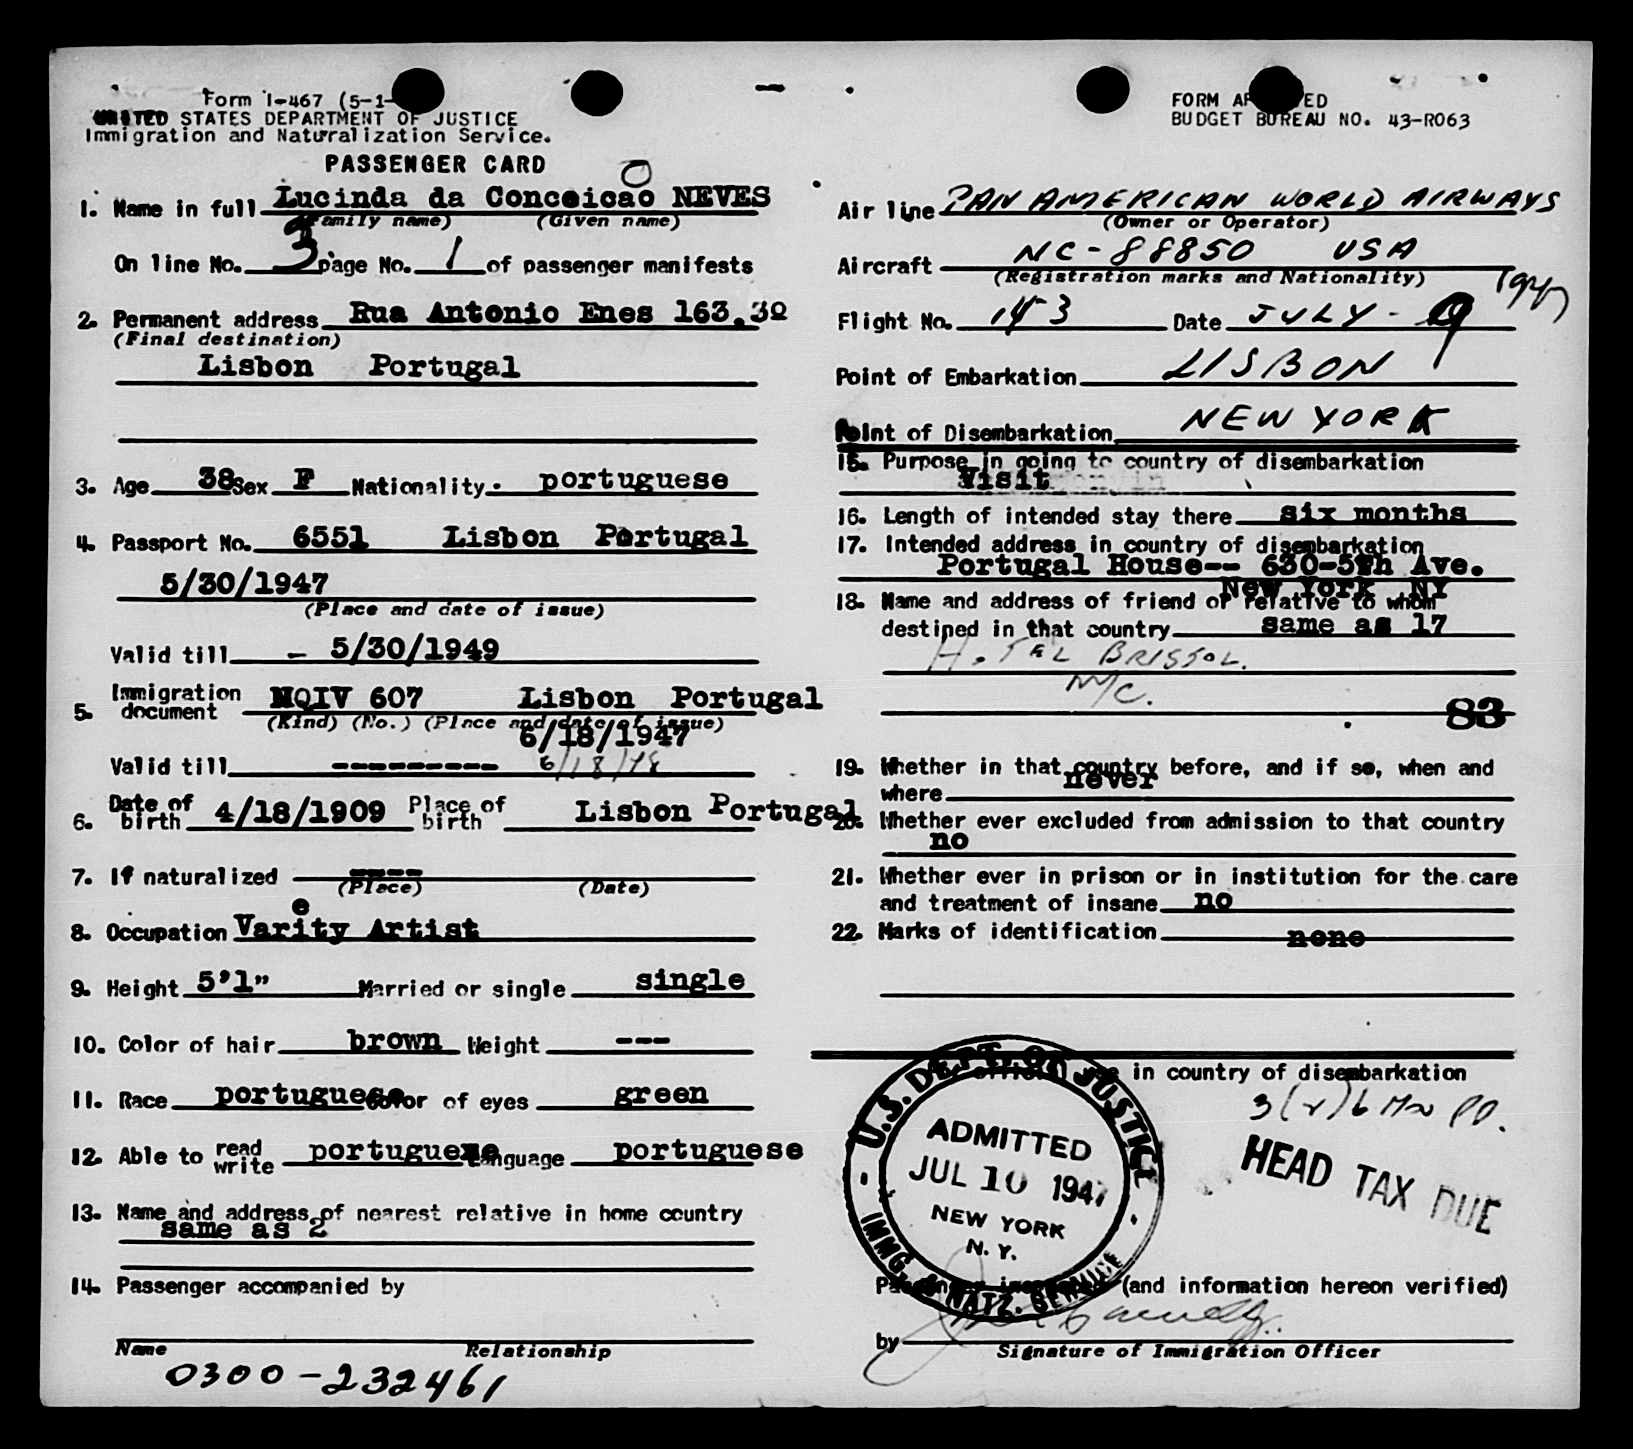 Form I-467 (5-1-
UNITED STATES DEPARTMENT OF JUSTICE
Immigration and Naturalization Service.
PASSENGER CARD
1. Name in full Lucinda da Conceicao NEVES
(Family name) (Given name)
On line No. 3 page No. 1 of passenger manifests
2. Permanent address Rua Antonio Enes 163,3º
(Final destination)
Lisbon Portugal
3. Age 38 Sex F Nationality portuguese
4. Passport No. 6551 Lisbon Portugal
5/30/1947
(Place and date of issue)
Valid till - 5/30/1949
5. Immigration document NQIV 607 Lisbon Portugal
(Kind) (No.) (Place and date of issue)
6/18/1947
Valid till ---------- 6/18/48
6. Date of birth 4/18/1909 Place of birth Lisbon Portugal
7. If naturalized ----
(Place) (Date)
e
8. Occupation Varity Artist
9. Height 5'1" Married or single single
10. Color of hair brown Weight ---
11. Race portuguese Color of eyes green
12. Able to read write portuguese Language portuguese
13. Name and address of nearest relative in home country
same as 2
14. Passenger accompanied by
Name Relationship
0300-232461
FORM APPROVED
BUDGET BUREAU NO. 43-R063
Air line PAN AMERICAN WORLD AIRWAYS
(Owner or Operator)
Aircraft NC-88850 USA
(Registration marks and Nationality)
Flight No. 143 Date JULY-9 1947
Point of Embarkation LISBON
Point of Disembarkation NEW YORK
15. Purpose in going to country of disembarkation
Visit
16. Length of intended stay there six months
17. Intended address in country of disembarkation
Portugal House-- 630-5th Ave.
New York NY
18. Name and address of friend or relative to whom
destined in that country same as 17
HOTEL BRISTOL.
NYC.
83
19. Whether in that country before, and if so, when and
where never
20. Whether ever excluded from admission to that country
no
21. Whether ever in prison or in institution for the care
and treatment of insane no
22. Marks of identification none
official use in country of disembarkation
3(2) 6 Mo PD.
HEAD TAX DUE
U.S. DEPT. OF JUSTICE
ADMITTED
JUL 10 1947
NEW YORK
N. Y.
IMMG. & NATZ. SERVICE
Passenger inspected (and information hereon verified)
by
Signature of Immigration Officer